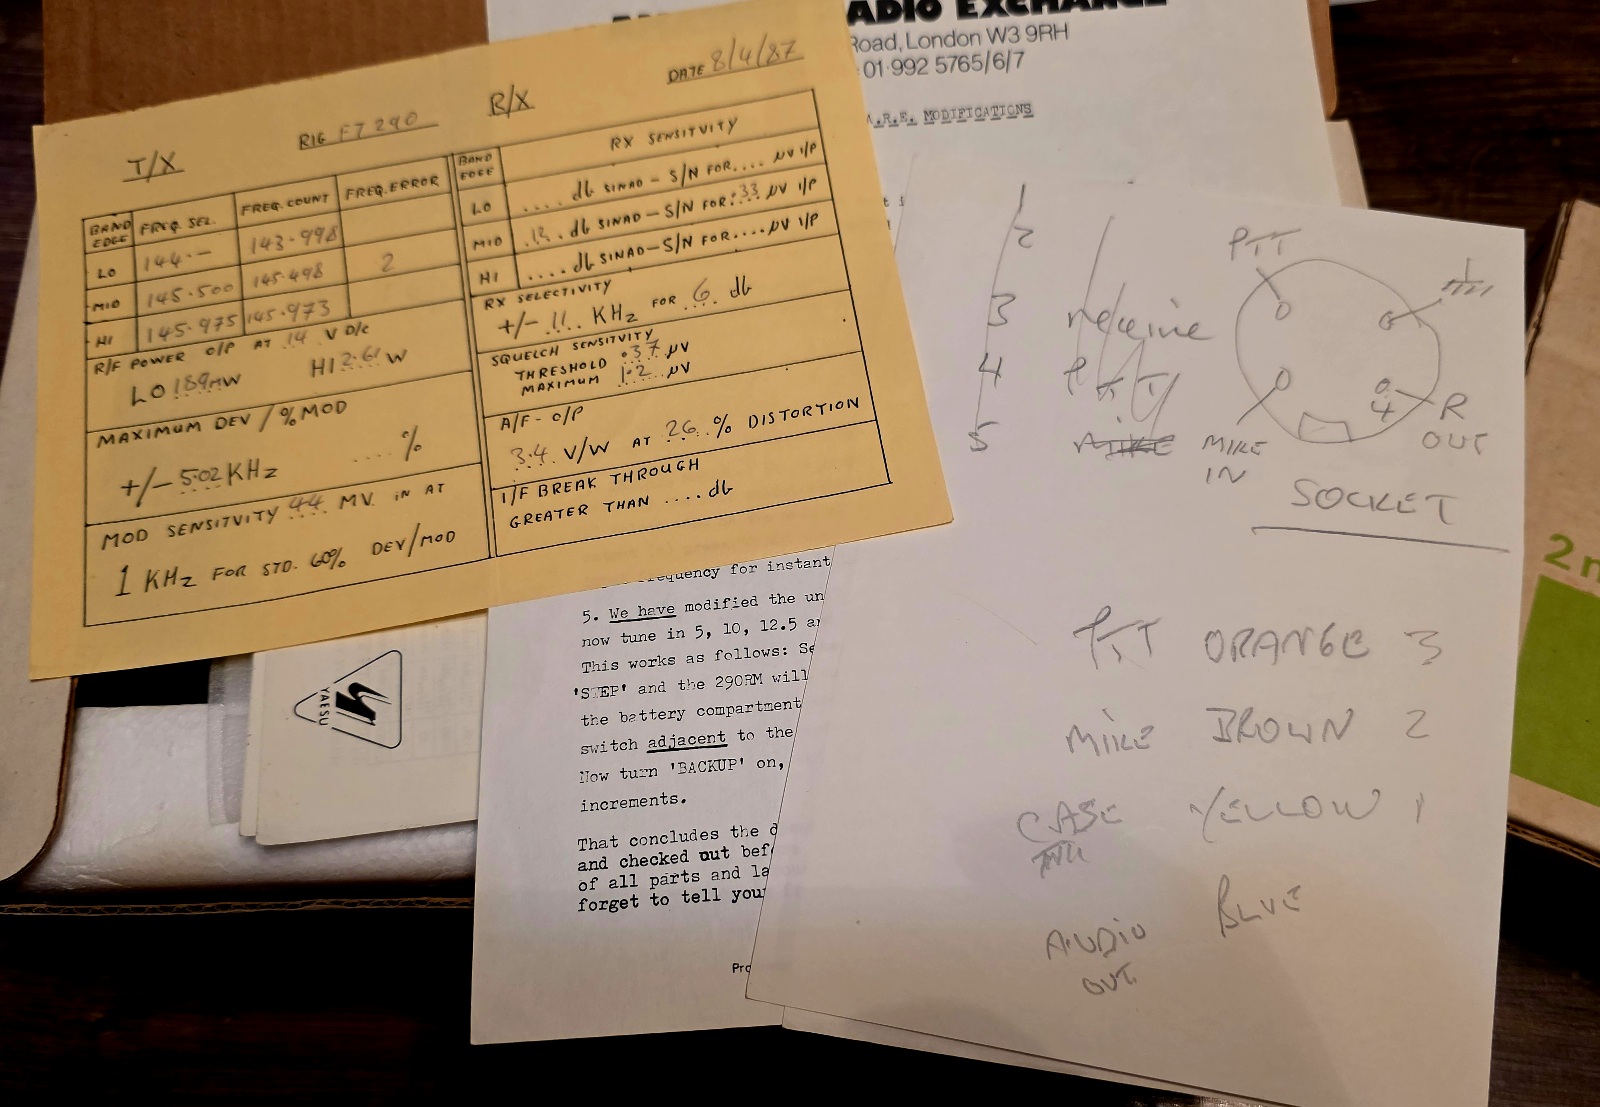 ADIO EXCHANGE
Road, London W3 9RH
: 01·992 5765/6/7
A.R.E. MODIFICATIONS
DATE 8/4/87
RIG FT 290
T/X
R/X
BAND EDGE
FREQ. SEL.
FREQ. COUNT
FREQ. ERROR
LO 144·— 143·998
MID 145·500 145·498 2
HI 145·975 145·973
R/F POWER O/P AT 14 V D/C
LO 189MW HI 2·61 W
MAXIMUM DEV / % MOD
+/- 5.02 KHz .... %
MOD SENSITVITY 44 MV. IN AT
1 KHz FOR STD. 60% DEV/MOD
BAND EDGE
RX SENSITIVITY
LO .... db SINAD - S/N FOR .... µV I/P
MID .12. db SINAD - S/N FOR .33 µV I/P
HI .... db SINAD - S/N FOR .... µV I/P
RX SELECTIVITY
+/- 11 KHz FOR 6 db
SQUELCH SENSITIVITY
THRESHOLD .37 µV
MAXIMUM 1.2 µV
A/F - O/P
3.4 V/W AT 26 % DISTORTION
I/F BREAK THROUGH
GREATER THAN .... db
YAESU
frequency for instant
5. We have modified the un
now tune in 5, 10, 12.5 a
This works as follows: Se
'STEP' and the 290RM will
the battery compartment
switch adjacent to the
Now turn 'BACKUP' on,
increments.
That concludes the d
and checked out bef
of all parts and la
forget to tell you
Pro
1
2
3 receive
4 PTT
5 MIKE
PTT
MIKE
IN
4
R
OUT
SOCKET
PTT ORANGE 3
MIKE BROWN 2
CASE YELLOW 1
AUDIO BLUE
OUT
2m